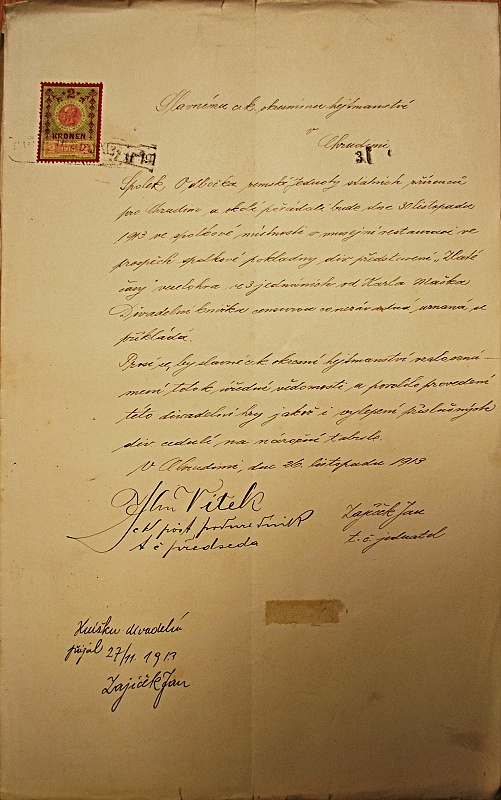 2
KRONEN
1913
Slavnému c. k. okresnímu hejtmanství
v
Chrudimi
3.
Spolek Odbočka zemské Jednoty státních zřízenců
pro Chrudim a okolí pořádati bude dne 30 listopadu
1913 ve spolkové místnosti v musejní restauraci ve
prospěch spolkové pokladny div. představení „Zlaté
časy" veselohra ve 3 jednáních od Karla Maška
Divadelní knížka censurou co nezávadná uznaná se
přikládá.
Prosí se, by slavné c. k. okresní hejtmanství vzalo ozná-
mení toto k úřední vědomosti a povolilo provedení
této divadelní hry jakož i vylepení příslušných
div. cedulí na nárožní tabule.
V Chrudimi, dne 26. listopadu 1913
Vítěk
ck pošt podúředník
t č předseda
Zajíček Jan
t. č. jednatel
Knížku divadelní
přijal 27/11 1913
Zajíček Jan